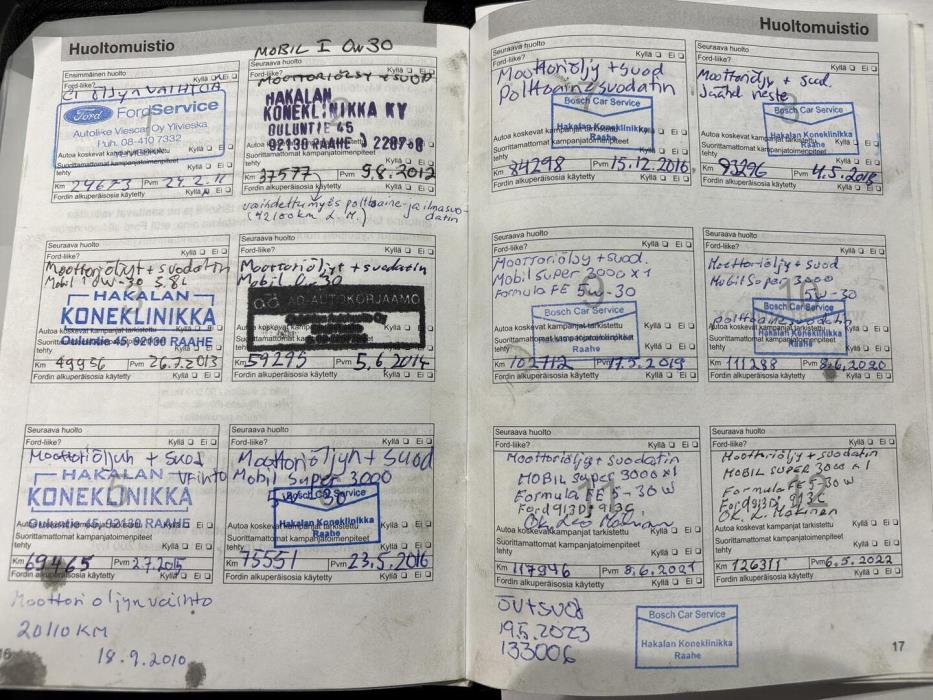 Huoltomuistio
MOBIL I 0W30
Ensimmäinen huolto
Ford-liike? Kyllä Ei
Ei öljyn vaihtoa
Ford FordService
Autoliike Viescar Oy Ylivieska
Puh. 08-410 7332
Autoa koskevat kampanjat tarkistettu
Suorittamattomat kampanjatoimenpiteet
tehty Kyllä Ei
Km 24673 Pvm
Fordin alkuperäisosia käytetty Kyllä Ei
Seuraava huolto
Ford-liike? Kyllä Ei
Moottoriöljy + suod
HAKALAN
KONEKLINIKKA KY
OULUNTIE 45
92130 RAAHE
Km 37577 Pvm 9.8.2012
Fordin alkuperäisosia käytetty Kyllä Ei
vaihdettu myös polttoaine- ja ilmasuo-
datin
Seuraava huolto
Ford-liike? Kyllä Ei
Moottoriöljyt + suodatin
Mobil 1 0W-30 5.8L
HAKALAN
KONEKLINIKKA
Ouluntie 45, 92130 RAAHE
Autoa koskevat kampanjat tarkistettu
Suorittamattomat kampanjatoimenpiteet
tehty Kyllä Ei
Km 49956 Pvm 26.7.2013
Fordin alkuperäisosia käytetty Kyllä Ei
Seuraava huolto
Ford-liike? Kyllä Ei
Moottoriöljyt + suodatin
Mobil 0-30
ad AD-AUTOKORJAAMO
Autoa koskevat kampanjat tarkistettu
Suorittamattomat kampanjatoimenpiteet
tehty Kyllä Ei
Km 59295 Pvm 5.6.2014
Fordin alkuperäisosia käytetty Kyllä Ei
Seuraava huolto
Ford-liike? Kyllä Ei
Moottoriöljyn + suod
vaihto
HAKALAN
KONEKLINIKKA
Ouluntie 45, 92130 RAAHE
Autoa koskevat kampanjat tarkistettu
Suorittamattomat kampanjatoimenpiteet
tehty Kyllä Ei
Km 69465 Pvm 2.7.2015
Fordin alkuperäisosia käytetty Kyllä Ei
Seuraava huolto
Ford-liike? Kyllä Ei
Moottoriöljyn + suod
Mobil Super 3000
5W-30
Bosch Car Service
Hakalan Koneklinikka
Raahe
Autoa koskevat kampanjat tarkistettu
Suorittamattomat kampanjatoimenpiteet
tehty Kyllä Ei
Km 75551 Pvm 23.5.2016
Fordin alkuperäisosia käytetty Kyllä Ei
Moottoriöljyn vaihto
20110 KM
18.9.2010
Huoltomuistio
Seuraava huolto
Ford-liike? Kyllä Ei
Moottoriöljy + suod
Polttoainesuodatin
Bosch Car Service
Hakalan Koneklinikka
Raahe
Autoa koskevat kampanjat tarkistettu
Suorittamattomat kampanjatoimenpiteet
tehty Kyllä Ei
Km 84298 Pvm 15.12.2016
Fordin alkuperäisosia käytetty Kyllä Ei
Seuraava huolto
Ford-liike? Kyllä Ei
Moottoriöljy + suod.
Jäähd neste
Bosch Car Service
Hakalan Koneklinikka
Raahe
Autoa koskevat kampanjat tarkistettu
Suorittamattomat kampanjatoimenpiteet
tehty Kyllä Ei
Km 93296 Pvm 4.5.2018
Fordin alkuperäisosia käytetty Kyllä Ei
Seuraava huolto
Ford-liike? Kyllä Ei
Moottoriöljy + suod.
Mobil Super 3000 x1
Formula FE 5W-30
Bosch Car Service
Hakalan Koneklinikka
Raahe
Autoa koskevat kampanjat tarkistettu
Suorittamattomat kampanjatoimenpiteet
tehty Kyllä Ei
Km 102712 Pvm 17.5.2019
Fordin alkuperäisosia käytetty Kyllä Ei
Seuraava huolto
Ford-liike? Kyllä Ei
Moottoriöljy + suod
Mobil Super 3000
5W-30
polttoainesuodatin
Bosch Car Service
Hakalan Koneklinikka
Raahe
Autoa koskevat kampanjat tarkistettu
Suorittamattomat kampanjatoimenpiteet
tehty Kyllä Ei
Km 111288 Pvm 8.6.2020
Fordin alkuperäisosia käytetty Kyllä Ei
Seuraava huolto
Ford-liike? Kyllä Ei
Moottoriöljy + suodatin
MOBIL SUPER 3000 x1
Formula FE 5-30W
Ford 913D, 913C,
Autoa koskevat kampanjat tarkistettu
Suorittamattomat kampanjatoimenpiteet
tehty Kyllä Ei
Km 117946 Pvm 8.6.2021
Fordin alkuperäisosia käytetty Kyllä Ei
Seuraava huolto
Ford-liike? Kyllä Ei
Moottoriöljy + suodatin
MOBIL SUPER 3000 x1
Formula FE 5-30W
Ford 913D, 913C
Autoa koskevat kampanjat tarkistettu
Suorittamattomat kampanjatoimenpiteet
tehty Kyllä Ei
Km 126311 Pvm 6.5.2022
Fordin alkuperäisosia käytetty Kyllä Ei
ÖV+suod
19.5.2023
133006
Bosch Car Service
Hakalan Koneklinikka
Raahe
17